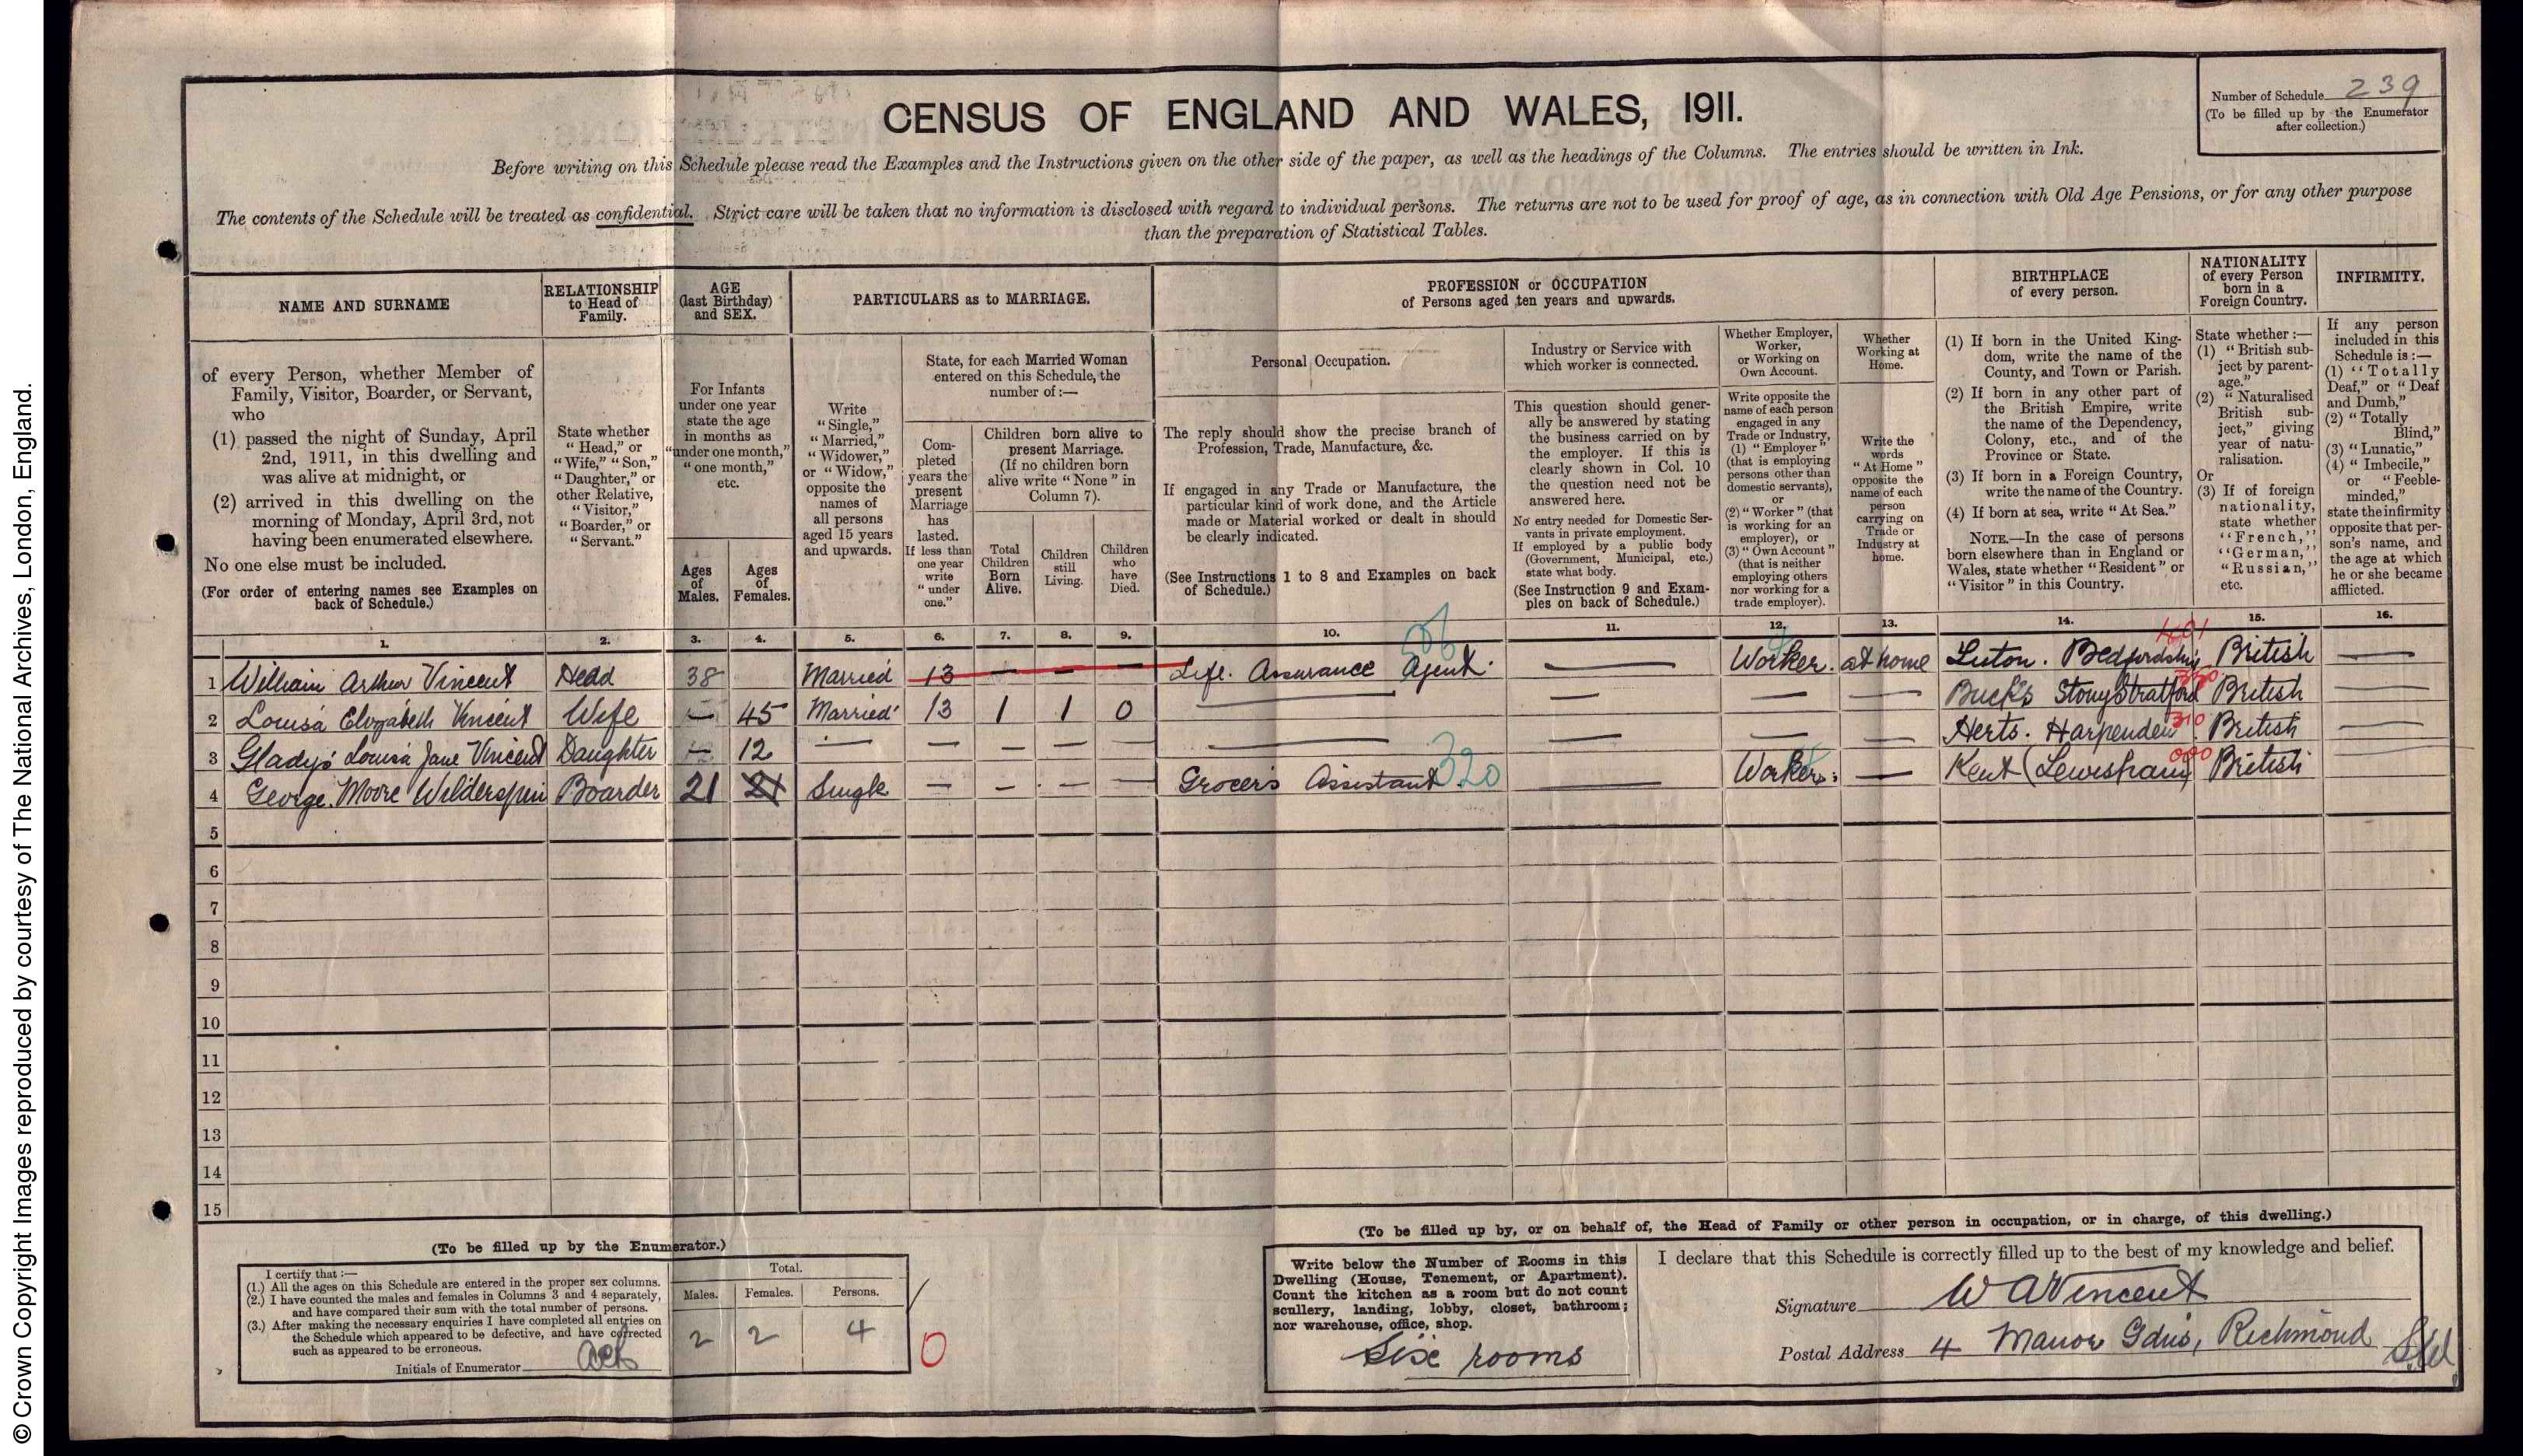 © Crown Copyright Images reproduced by courtesy of The National Archives, London, England.
CENSUS OF ENGLAND AND WALES, 1911.
Number of Schedule 239
(To be filled up by the Enumerator
after collection.)
Before writing on this Schedule please read the Examples and the Instructions given on the other side of the paper, as well as the headings of the Columns. The entries should be written in Ink.
The contents of the Schedule will be treated as confidential. Strict care will be taken that no information is disclosed with regard to individual persons. The returns are not to be used for proof of age, as in connection with Old Age Pensions, or for any other purpose
than the preparation of Statistical Tables.
NAME AND SURNAME
RELATIONSHIP
to Head of
Family.
AGE
(last Birthday)
and SEX.
PARTICULARS as to MARRIAGE.
PROFESSION or OCCUPATION
of Persons aged ten years and upwards.
BIRTHPLACE
of every person.
NATIONALITY
of every Person
born in a
Foreign Country.
INFIRMITY.
of every Person, whether Member of
Family, Visitor, Boarder, or Servant,
who
(1) passed the night of Sunday, April
2nd, 1911, in this dwelling and
was alive at midnight, or
(2) arrived in this dwelling on the
morning of Monday, April 3rd, not
having been enumerated elsewhere.
No one else must be included.
(For order of entering names see Examples on
back of Schedule.)
State whether
"Head," or
"Wife," "Son,"
"Daughter," or
other Relative,
"Visitor,"
"Boarder," or
"Servant."
For Infants
under one year
state the age
in months as
"under one month,"
"one month,"
etc.
Ages
of
Males.
Ages
of
Females.
Write
"Single,"
"Married,"
"Widower,"
or "Widow,"
opposite the
names of
all persons
aged 15 years
and upwards.
State, for each Married Woman
entered on this Schedule, the
number of:—
Com-
pleted
years the
present
Marriage
has
lasted.
If less than
one year
write
"under
one."
Children born alive to
present Marriage.
(If no children born
alive write "None" in
Column 7).
Total
Children
Born
Alive.
Children
still
Living.
Children
who
have
Died.
Personal Occupation.
The reply should show the precise branch of
Profession, Trade, Manufacture, &c.
If engaged in any Trade or Manufacture, the
particular kind of work done, and the Article
made or Material worked or dealt in should
be clearly indicated.
(See Instructions 1 to 8 and Examples on back
of Schedule.)
Industry or Service with
which worker is connected.
This question should gener-
ally be answered by stating
the business carried on by
the employer. If this is
clearly shown in Col. 10
the question need not be
answered here.
No entry needed for Domestic Ser-
vants in private employment.
If employed by a public body
(Government, Municipal, etc.)
state what body.
(See Instruction 9 and Exam-
ples on back of Schedule.)
Whether Employer,
Worker,
or Working on
Own Account.
Write opposite the
name of each person
engaged in any
Trade or Industry,
(1) "Employer"
(that is employing
persons other than
domestic servants),
or
(2) "Worker" (that
is working for an
employer), or
(3) "Own Account"
(that is neither
employing others
nor working for a
trade employer).
Whether
Working at
Home.
Write the
words
"At Home"
opposite the
name of each
person
carrying on
Trade or
Industry at
home.
(1) If born in the United King-
dom, write the name of the
County, and Town or Parish.
(2) If born in any other part of
the British Empire, write
the name of the Dependency,
Colony, etc., and of the
Province or State.
(3) If born in a Foreign Country,
write the name of the Country.
(4) If born at sea, write "At Sea."
NOTE.—In the case of persons
born elsewhere than in England or
Wales, state whether "Resident" or
"Visitor" in this Country.
State whether:—
(1) "British sub-
ject by parent-
age."
(2) "Naturalised
British sub-
ject," giving
year of natu-
ralisation.
Or
(3) If of foreign
nationality,
state whether
"French,"
"German,"
"Russian,"
etc.
If any person
included in this
Schedule is:—
(1) "Totally
Deaf," or "Deaf
and Dumb,"
(2) "Totally
Blind,"
(3) "Lunatic,"
(4) "Imbecile,"
or "Feeble-
minded,"
state the infirmity
opposite that per-
son's name, and
the age at which
he or she became
afflicted.
1. 2. 3. 4. 5. 6. 7. 8. 9. 10. 11. 12. 13. 14. 15. 16.
1 William Arthur Vincent Head 38 Married 13 — — — Life. Assurance Agent. — Worker. at home Luton. Bedfordshire British —
2 Louisa Elizabeth Vincent Wife — 45 Married 13 1 1 0 — — — — Bucks Stony Stratford British —
3 Gladys Louisa Jane Vincent Daughter — 12 — — — — — — — — — Herts. Harpenden 310 British —
4 George Moore Wilderspin Boarder 21 21 Single — — — — Grocer's Assistant 320 — Worker: — Kent (Lewisham) 000 British
5
6
7
8
9
10
11
12
13
14
15
(To be filled up by the Enumerator.)
I certify that:—
(1.) All the ages on this Schedule are entered in the proper sex columns.
(2.) I have counted the males and females in Columns 3 and 4 separately,
and have compared their sum with the total number of persons.
(3.) After making the necessary enquiries I have completed all entries on
the Schedule which appeared to be defective, and have corrected
such as appeared to be erroneous.
Initials of Enumerator
Total.
Males. Females. Persons.
2 2 4
0
(To be filled up by, or on behalf of, the Head of Family or other person in occupation, or in charge, of this dwelling.)
Write below the Number of Rooms in this
Dwelling (House, Tenement, or Apartment).
Count the kitchen as a room but do not count
scullery, landing, lobby, closet, bathroom;
nor warehouse, office, shop.
Six rooms
I declare that this Schedule is correctly filled up to the best of my knowledge and belief.
Signature W A Vincent
Postal Address 4 Manor Gdns, Richmond